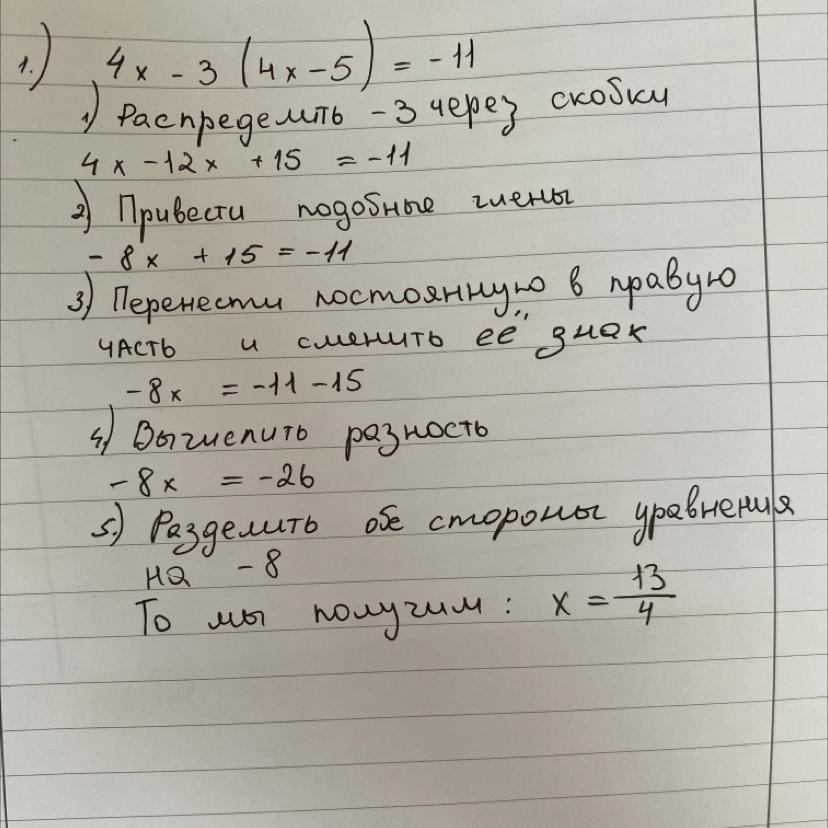 1.) 4x - 3 (4x - 5) = -11
1) Распределить -3 через скобки
4x - 12x + 15 = -11
2) Привести подобные члены
- 8x + 15 = -11
3) Перенести постоянную в правую
часть и сменить её знак
-8x = -11 - 15
4) Вычислить разность
-8x = -26
5.) Разделить обе стороны уравнения
на -8
То мы получим: x = 13/4